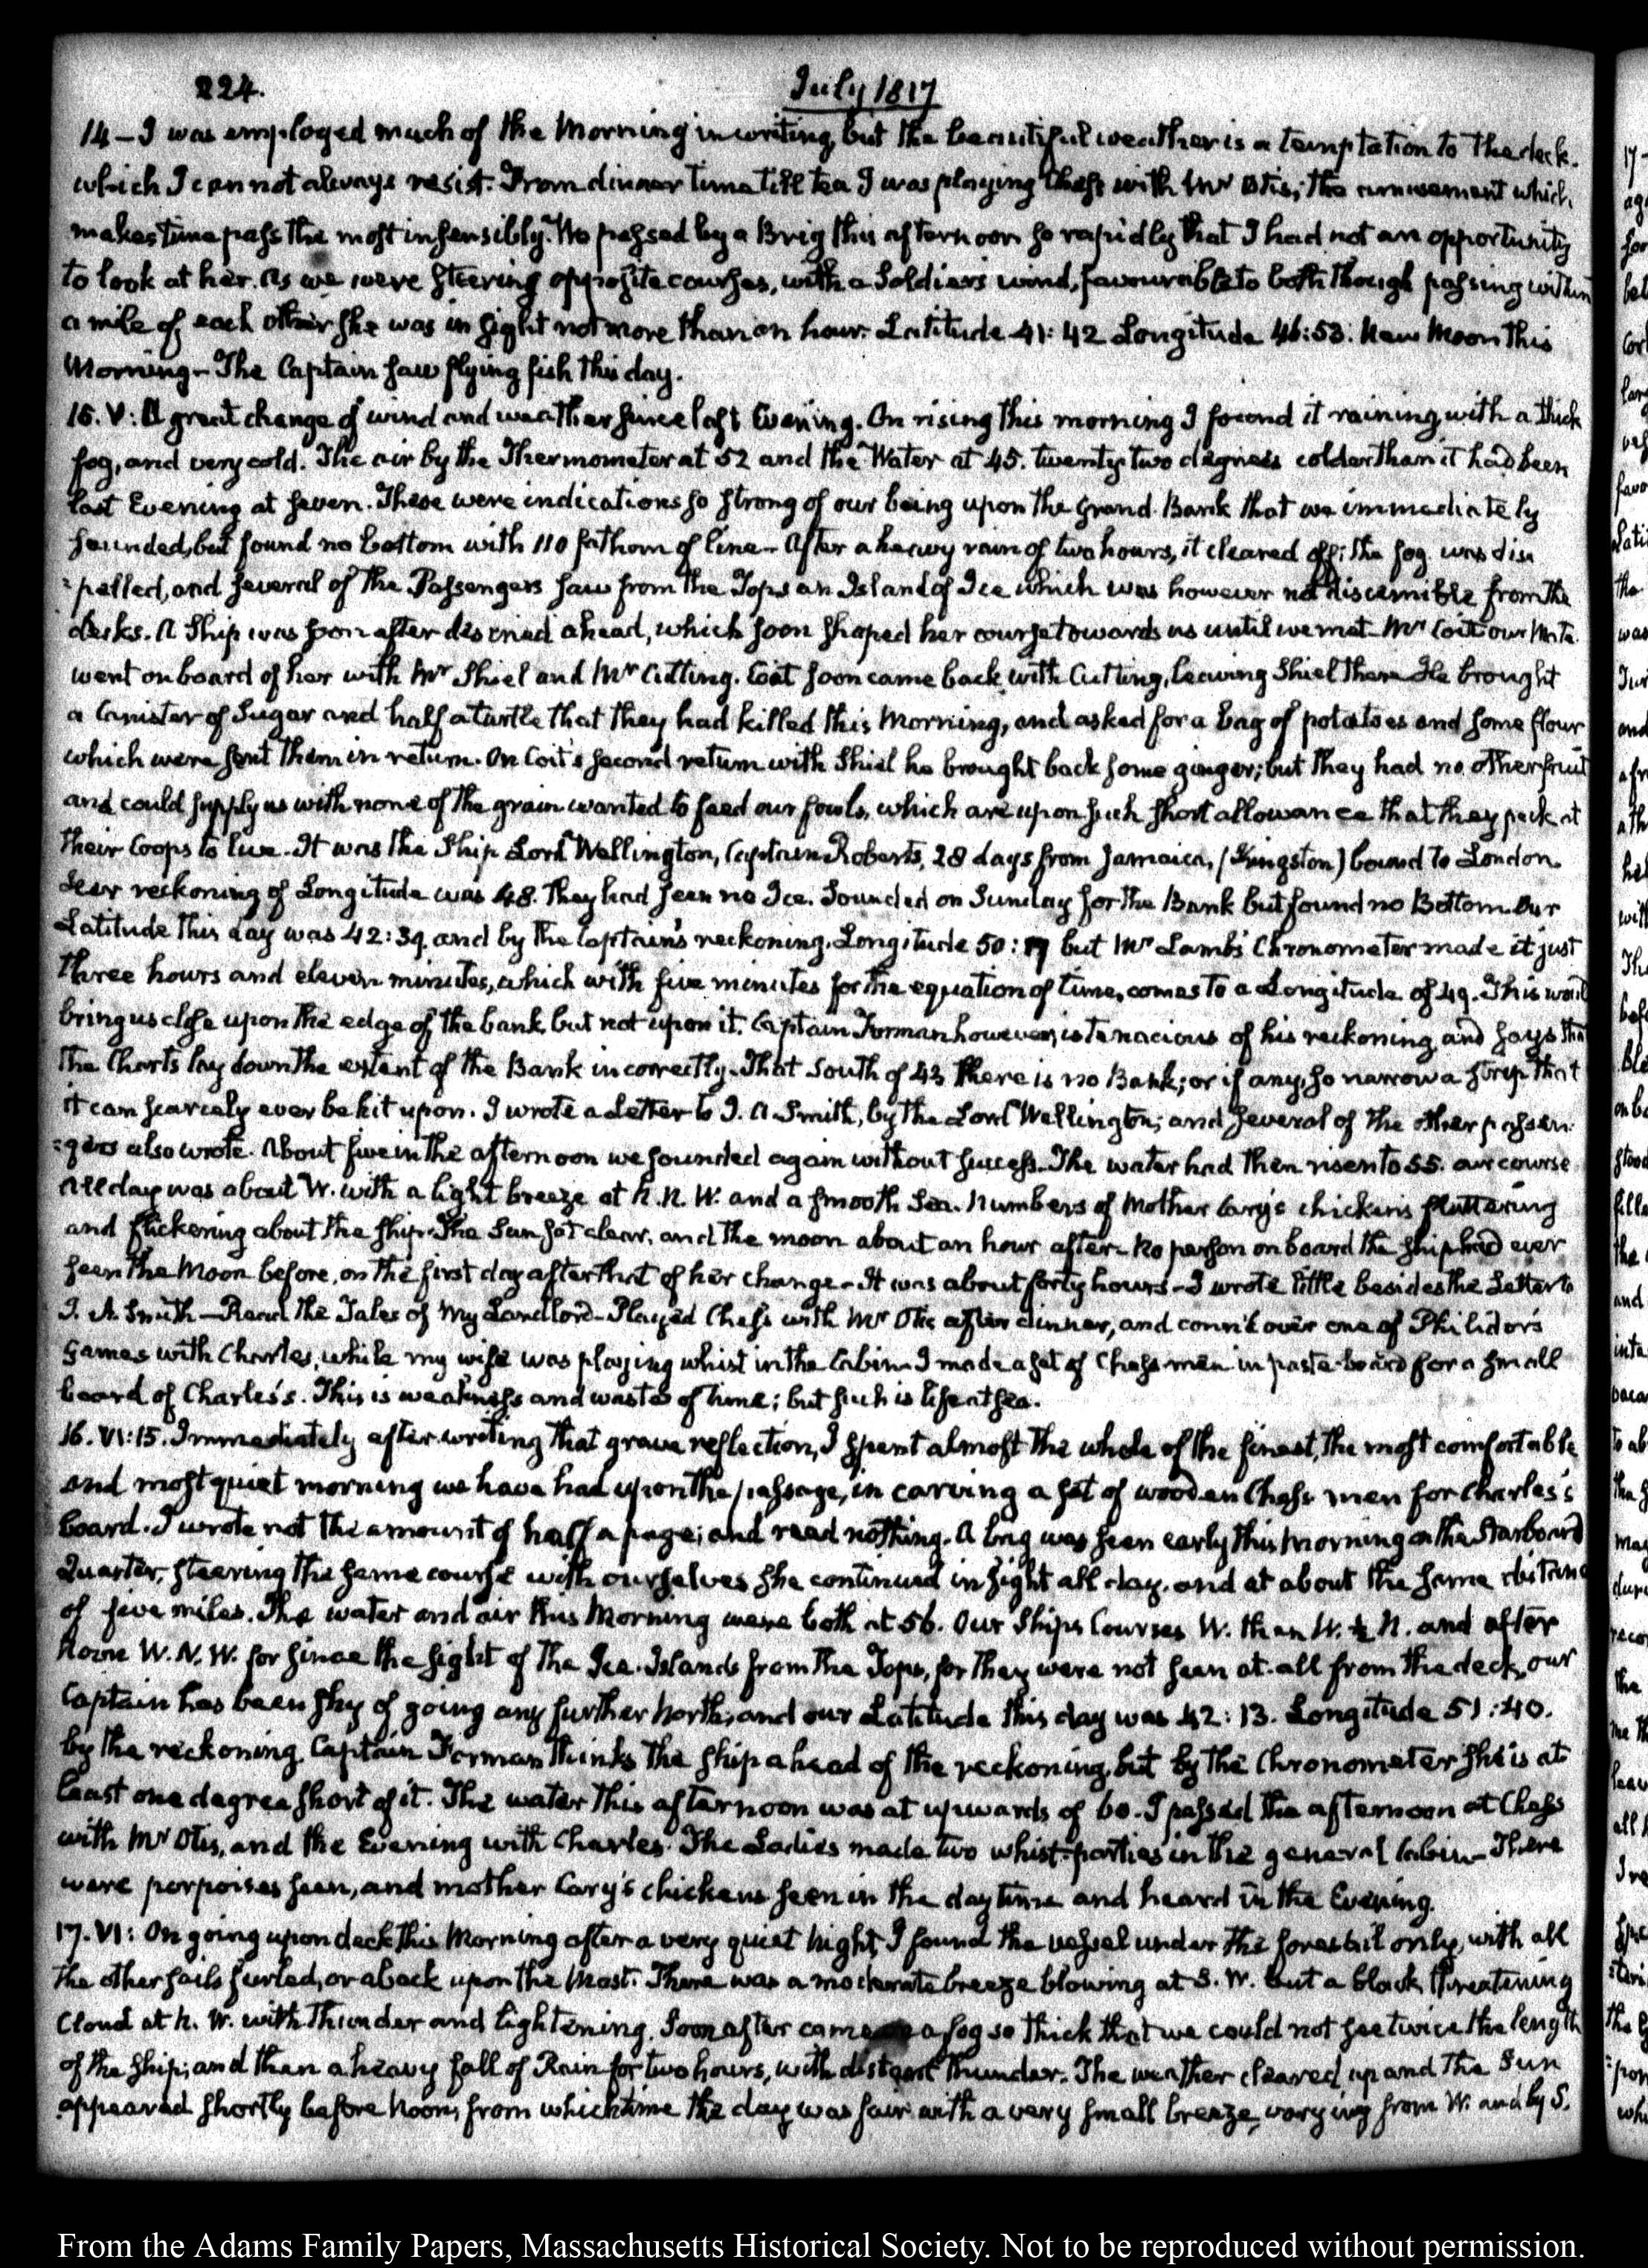 224.
July 1817
14 – I was employed much of the Morning in writing, but the beautiful weather is a temptation to the deck.
which I cannot always resist. From dinner time till tea I was playing Chess with Mr Otis; the amusement which
makes time pass the most insensibly. We passed by a Brig this afternoon so rapidly that I had not an opportunity
to look at her. As we were steering opposite courses, with a Soldier's wind, favourable to both though passing within
a mile of each other she was in sight not more than an hour. Latitude 41:42 Longitude 46:53. New Moon this
Morning – The Captain saw flying fish this day.
15. V: A great change of wind and weather since last Evening. On rising this morning I found it raining, with a thick
fog, and very cold. The air by the Thermometer at 52 and the Water at 45. twenty two degrees colder than it had been
last Evening at seven. These were indications so strong of our being upon the Grand Bank that we immediately
sounded, but found no bottom with 110 fathom of line – After a heavy rain of two hours, it cleared off; the fog was dis
=pelled, and several of the Passengers saw from the Tops an Island of Ice which was however not discernible from the
decks. A Ship was soon after descried ahead, which soon shaped her course towards us until we met. Mr Coit our Mate
went on board of her with Mr Shiel and Mr Cutting. Coit soon came back with Cutting, leaving Shiel there. He brought
a Canister of Sugar and half a turtle that they had killed this Morning, and asked for a bag of potatoes and some flour
which were sent them in return. On Coit's second return with Shiel he brought back some ginger; but they had no other fruit
and could supply us with none of the grain wanted to feed our fowls, which are upon such short allowance that they peck at
their Coops to live. It was the Ship Lord Wellington, Captain Roberts, 28 days from Jamaica, (Kingston) bound to London.
Her reckoning of Longitude was 48. They had seen no Ice. Sounded on Sunday for the Bank but found no Bottom. Our
Latitude this day was 42:39. and by the Captain's reckoning. Longitude 50:19 but Mr Lamb's Chronometer made it just
three hours and eleven minutes, which with five minutes for the equation of time, comes to a Longitude of 49. This would
bring us close upon the edge of the bank, but not upon it. Captain Forman however, is tenacious of his reckoning, and says that
the Charts lay down the extent of the Bank incorrectly. That South of 43 there is no Bank; or if any, so narrow a strip that
it can scarcely ever be hit upon. I wrote a Letter to J. A. Smith, by the Lord Wellington; and several of the other passen
=gers also wrote. About five in the afternoon we sounded again without success. The water had then risen to 55. our course
all day was about W. with a light breeze at N. N. W. and a smooth Sea. Numbers of Mother Cary's chickens fluttering
and flickering about the Ship. The Sun set clear, and the moon about an hour after – No person on board the ship had ever
seen the Moon before, on the first day after that of her change – It was about forty hours – I wrote little besides the Letter to
J. A. Smith – Read the Tales of My Landlord – Played Chess with Mr Otis after dinner, and conn'd over one of Philidor's
games with Charles, while my wife was playing whist in the Cabin – I made a set of Chess men in paste-board for a small
board of Charles's. This is weakness and waste of time; but such is life at sea.
16. VI:15. Immediately after writing that grave reflection, I spent almost the whole of the finest, the most comfortable
and most quiet morning we have had upon the passage, in carving a set of wooden Chess men for Charles's
board. I wrote not the amount of half a page; and read nothing. A brig was seen early this morning on the Starboard
Quarter, steering the same course with ourselves she continued in sight all day, and at about the same distance
of five miles. The water and air this Morning were both at 56. Our Ships Courses W. then W. ½ N. and after
Noon W. N. W. for since the sight of the Ice-Islands from the Tops, for they were not seen at all from the deck, our
Captain has been shy of going any further North, and our Latitude this day was 42:13. Longitude 51:40.
by the reckoning. Captain Forman thinks the ship ahead of the reckoning, but by the Chronometer she is at
least one degree short of it. The water this afternoon was at upwards of 60. I passed the afternoon at Chess
with Mr Otis, and the Evening with Charles. The Ladies made two whist-parties in the general Cabin – There
were porpoises seen, and mother Cary's chickens seen in the day time and heard in the Evening.
17. VI: On going upon deck this Morning after a very quiet Night, I found the vessel under the foresail only, with all
the other sails furled, or aback upon the Mast. There was a moderate breeze blowing at S. W. but a black threatening
Cloud at N. W. with Thunder and lightening. Soon after came a fog so thick that we could not see twice the length
of the ship; and then a heavy fall of Rain for two hours, with distant thunder. The weather cleared up and the Sun
appeared shortly before Noon, from which time the day was fair with a very small breeze, varying from W. and by S.
From the Adams Family Papers, Massachusetts Historical Society. Not to be reproduced without permission.